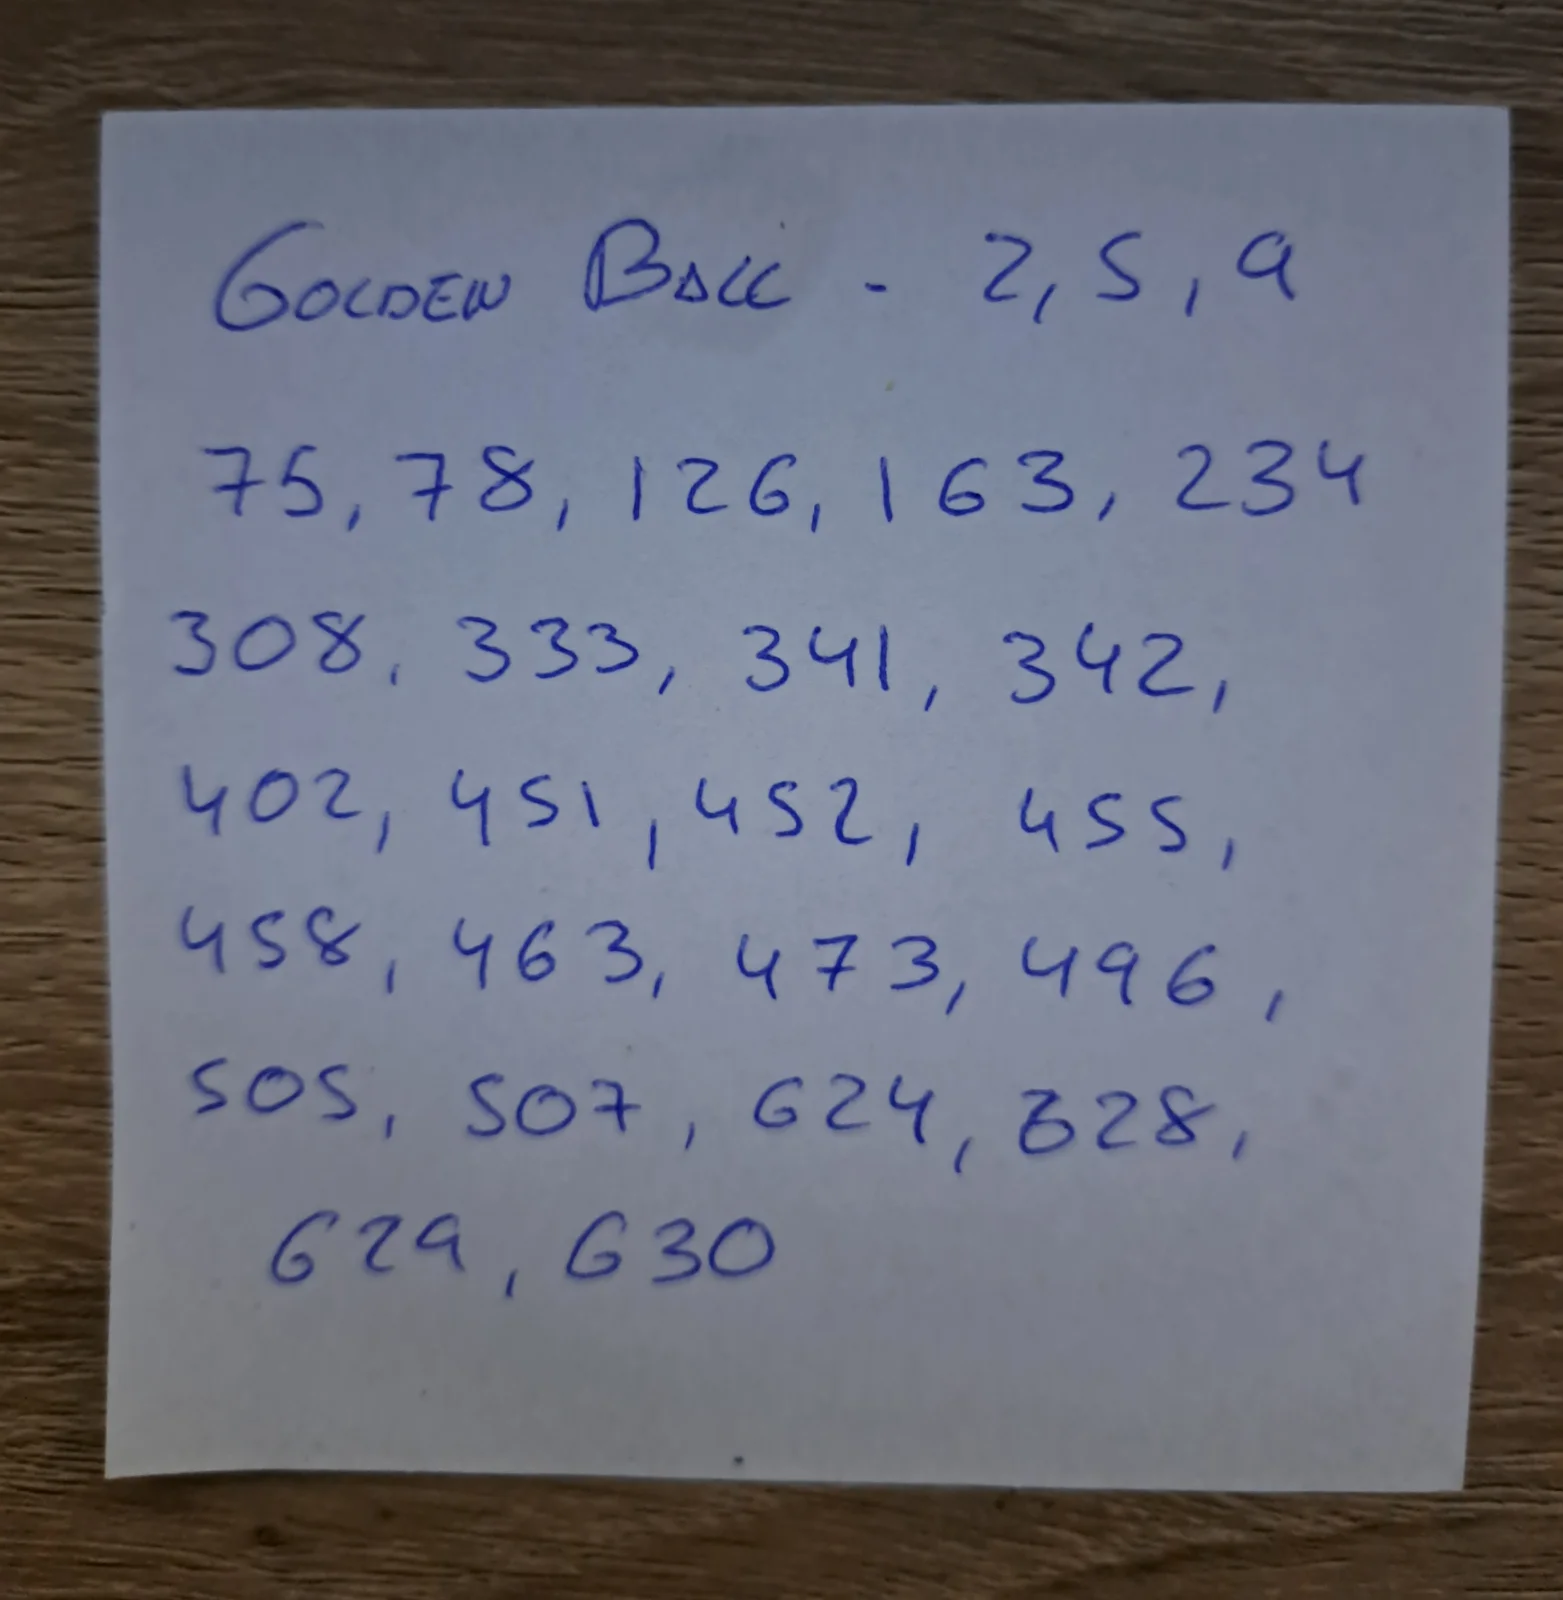 GOLDEN BALL - 2, 5, 9
75, 78, 126, 163, 234
308, 333, 341, 342,
402, 451, 452, 455,
458, 463, 473, 496,
505, 507, 624, 628,
629, 630